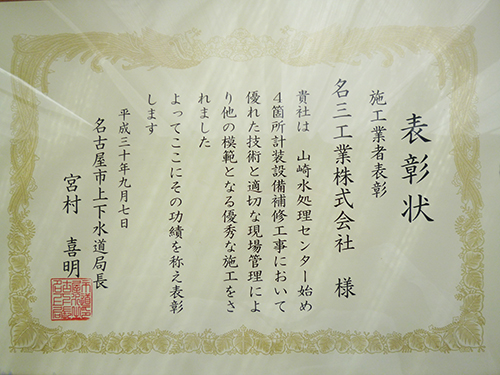 表彰状
施工業者表彰
名三工業株式会社 様
貴社は 山崎水処理センター始め
4箇所計装設備補修工事において
優れた技術と適切な現場管理によ
り他の模範となる優秀な施工をさ
れました
よってここにその功績を称え表彰
します
平成三十年九月七日
名古屋市上下水道局長
宮村 喜明